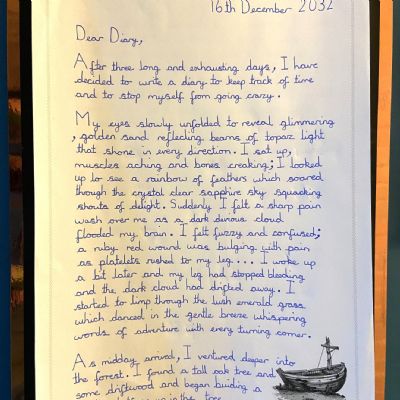 16th December 2032
Dear Diary,
After three long and exhausting days, I have
decided to write a diary to keep track of time
and to stop myself from going crazy.
My eyes slowly unfolded to reveal glimmering
, golden sand reflecting beams of topaz light
that shone in every direction. I sat up,
muscles aching and bones creaking; I looked
up to see a rainbow of feathers which soared
through the crystal clear sapphire sky squawking
shouts of delight. Suddenly I felt a sharp pain
wash over me as a dark devious cloud
flooded my brain. I felt fuzzy and confused;
a ruby red wound was bulging with pain
as platelets rushed to my leg.... I woke up
a bit later and my leg had stopped bleeding
and the dark cloud had drifted away. I
started to limp through the lush emerald grass
which danced in the gentle breeze whispering
words of adventure with every turning corner.
As midday arrived, I ventured deeper into
the forest. I found a tall oak tree and
some driftwood and began building a
up in the tree